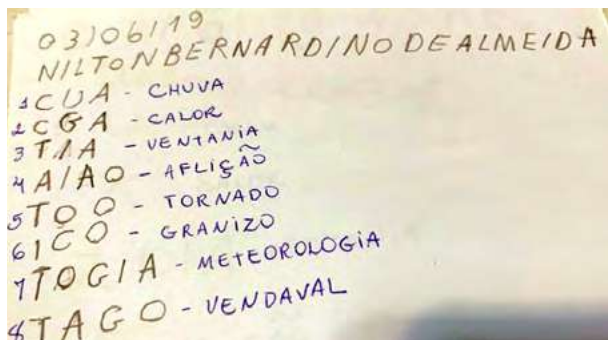 03/06/19
NILTON BERNARDINO DE ALMEIDA
1 CUA - CHUVA
2 CGA - CALOR
3 TIA - VENTANIA
4 AIAO - AFLIÇÃO
5 TOO - TORNADO
6 ICO - GRANIZO
7 TOGIA - METEOROLOGIA
8 TAGO - VENDAVAL